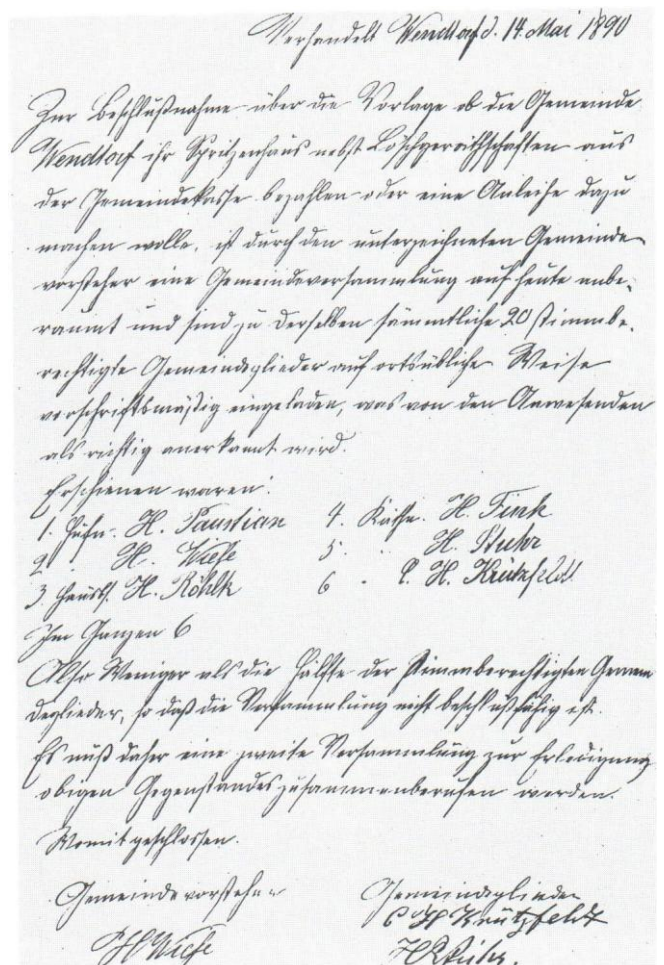 Verhandelt Wendtorf d. 14. Mai 1890
Zur Beschlußnahme über die Vorlage ob die Gemeinde
Wendtorf ihr Spritzenhaus nebst Löschgeräthschaften aus
der Gemeindekasse bezahlen oder eine Anleihe dazu
machen wolle, ist durch den unterzeichneten Gemeinde
vorsteher eine Gemeindeversammlung auf heute anbe-
raumt und sind zu derselben sämmtliche 20 stimmbe-
rechtigte Gemeindeglieder auf ortsübliche Weise
vorschriftsmäßig eingeladen, was von den Anwesenden
als richtig anerkannt wird.
Erschienen waren:
1. Hufn. H. Paustian 4. Käthn. H. Fink
2 " H. Wiese 5. " H. Stuhr
3. Hausb. H. Röhlk 6 " C. H. Krützfeldt
Im Ganzen 6
Also Weniger als die Hälfte der stimmberechtigten Gemein
deglieder, so daß die Versammlung nicht beschlußfähig ist.
Es muß daher eine zweite Versammlung zur Erledigung
obigen Gegenstandes zusammenberufen werden.
Womit geschlossen.
Gemeindevorsteher Gemeindeglieder
C H Krützfeldt
H Wiese H Stuhr.